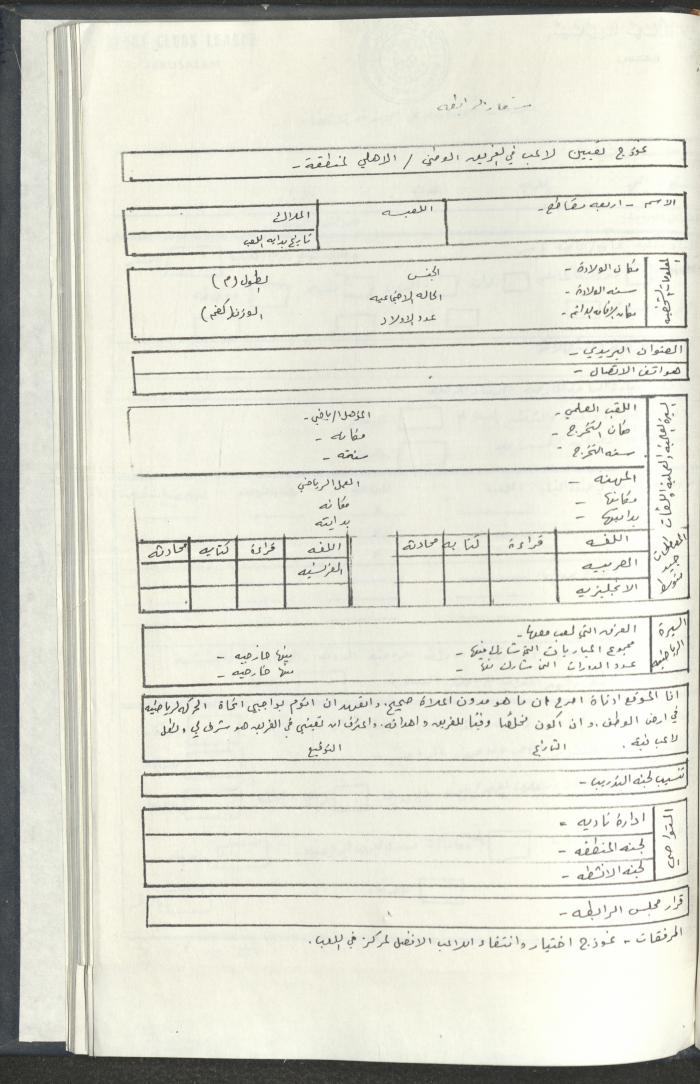 نموذج تعيين لاعب في الفريق الوطني / الاهلي لمنطقة -
الاسم - اربعة مقاطع - اللعبـه الملاك
تاريخ بدايه اللعب
المعلومات الشخصيه
مكان الولادة - الجنس الطول (م)
سنه الولادة - الحاله الاجتماعيه
مكان الاقامه الدائم - عدد الاولاد الوزن (كغم)
العنوان البريدي -
هواتف الاتصال -
اللقب العلمي - المؤهل الرياضي -
مكان التخرج - مكانه -
سنه التخرج - سنته -
المهنه - العمل الرياضي
مكانها - مكانه
بدايتها - بدايته
اللغـه قراءة كتابه محادثه اللغه قراءة كتابه محادثه
العربيه الفرنسيه
الانجليزيه
السيرة الرياضيه
الفرق التي لعب معها -
مجموع المباريات التي شارك فيها - منها خارجيه -
عدد الدورات التي شارك فيها - منها خارجيه -
انا الموقع ادناة اصرح ان ما هو مدون اعلاة صحيح، واتعهد ان اقوم بواجبي اتجاة الحركه الرياضيه
في ارض الوطن، وان اكون مخلصًا وفيًا للفريق واهدافه، واعترف ان تعييني في الفريق هو شرف لي
التاريخ التوقيع
تنسيب لجنه التدريب -
التواصي
ادارة ناديه -
لجنه المنطقه -
لجنه الانشطه -
قرار مجلس الرابطه -
المرفقات - نموذج اختيار وانتقاء اللاعب الافضل لمركز في اللعب.